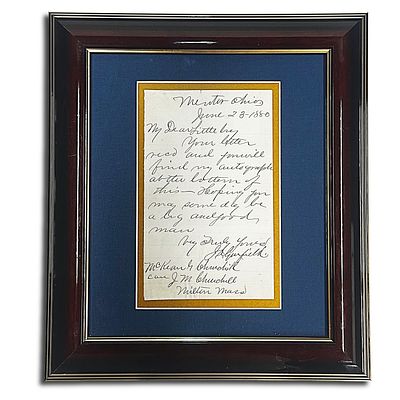 Mentor Ohio
June 23-1880
My Dear little boy
Your letter
recd and you will
find my autograph
at the bottom of
this - Hoping you
may some day be
a big and good
man
Very Truly Yours
J A Garfield
McKean G Churchill
care J. M Churchill
Milton Mass